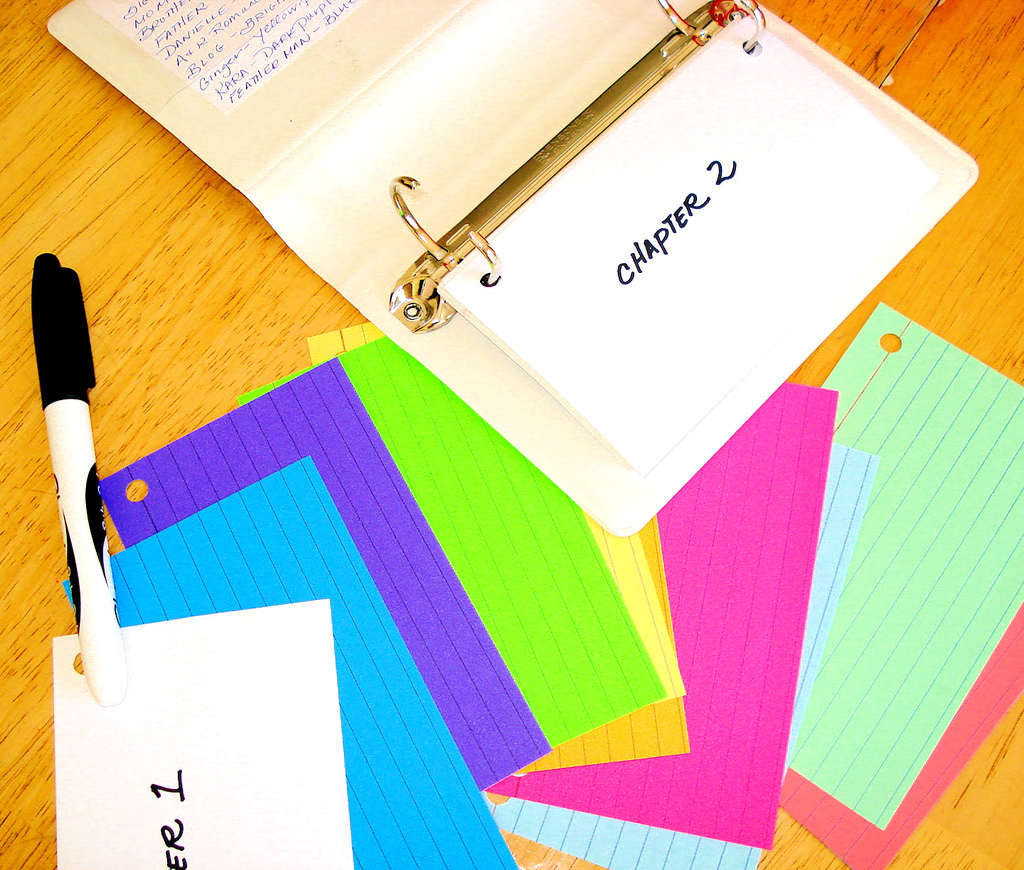 MOM
BROTHER
FATHER
DANIELLE
A & R ROMAN
BLOG - BRIGH
Ginger - Yellow
KARA - DARK PURPL
FEATHER MAN - BLUE
CHAPTER 2
ER 1